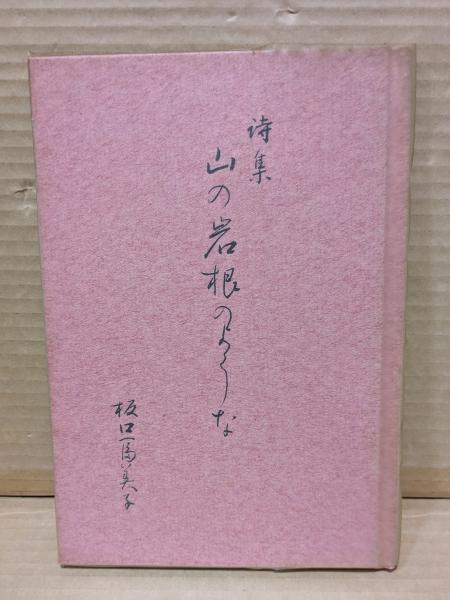 詩集
山の岩根のような
板口冨美子